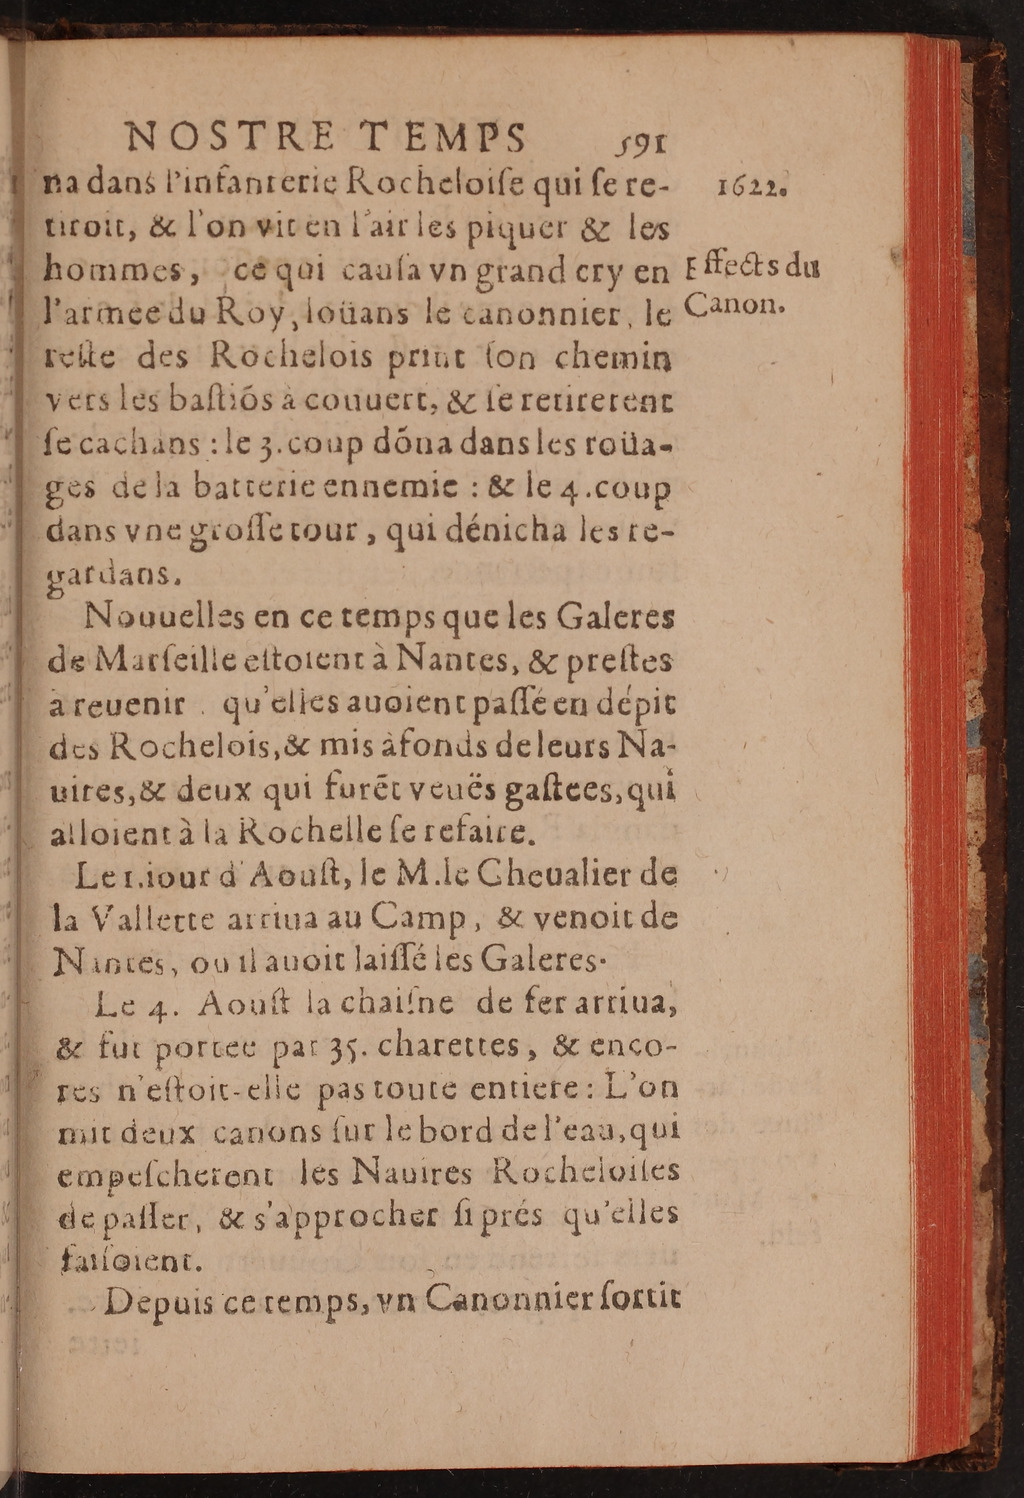 NOSTRE TEMPS 591
na dans l'infanterie Rocheloiſe qui ſe re- 1622.
tiroit, & l'on vit en l'air les piquer & les
hommes, ce qui cauſa vn grand cry en Effects du
l'armee du Roy, loüans le canonnier, le Canon.
reſte des Rochelois print ſon chemin
vers les baſtiõs à couuert, & ſe retirerent
ſe cachans : le 3. coup dõna dans les roüa-
ges de la batterie ennemie : & le 4. coup
dans vne groſſe tour, qui dénicha les re-
gardans.
Nouuelles en ce temps que les Galeres
de Marſeille eſtoient à Nantes, & preſtes
à reuenir. qu'elles auoient paſſé en dépit
des Rochelois, & mis à fonds de leurs Na-
uires, & deux qui furẽt veuës gaſtees, qui
alloient à la Rochelle ſe refaire.
Le 1. iour d'Aouſt, le M. le Cheualier de
la Vallette arriua au Camp, & venoit de
Nantes, ou il auoit laiſſé les Galeres.
Le 4. Aouſt la chaiſne de fer arriua,
& fut portee par 35. charettes, & enco-
res n'eſtoit-elle pas toute entiere: L'on
mit deux canons ſur le bord de l'eau, qui
empeſcherent les Nauires Rocheloiſes
de paſſer, & s'approcher ſi prés qu'elles
faiſoient.
Depuis ce temps, vn Canonnier ſortit